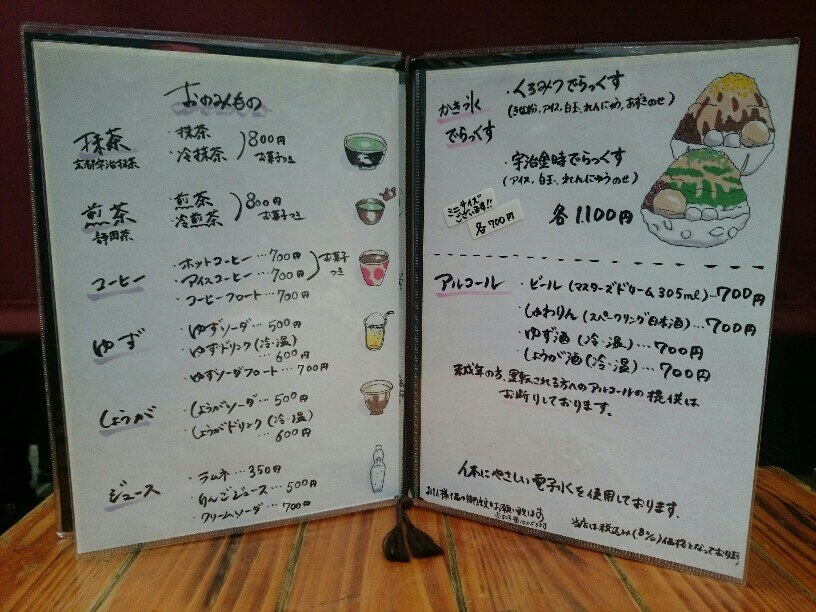 おのみもの
抹茶
京都宇治抹茶
・抹茶
・冷抹茶
800円
お菓子つき
煎茶
静岡茶
・煎茶
・冷煎茶
800円
お菓子つき
コーヒー
・ホットコーヒー…700円
・アイスコーヒー…700円
お菓子つき
・コーヒーフロート…700円
ゆず
・ゆずソーダ…500円
・ゆずドリンク(冷・温)
…600円
・ゆずソーダフロート…700円
しょうが
・しょうがソーダ…500円
・しょうがドリンク(冷・温)
…600円
ジュース
・ラムネ…350円
・りんごジュース…500円
・クリームソーダ…700円
かき氷
でらっくす
・くろみつでらっくす
(きな粉、アイス、白玉、れんにゅう、あずきのせ)
・宇治金時でらっくす
(アイス、白玉、れんにゅうのせ)
ミニサイズ
ございます!!
各700円
各1.100円
アルコール
・ビール(マスターズドリーム305ml)…700円
・しゅわりん(スパークリング日本酒)…700円
・ゆず酒(冷・温)…700円
・しょうが酒(冷・温)…700円
未成年の方、運転される方へのアルコールの提供は
お断りしております。
人体にやさしい電子水を使用しております。
お1人様1品の御注文をお願い致します
当店は税込み(8%)価格となっており